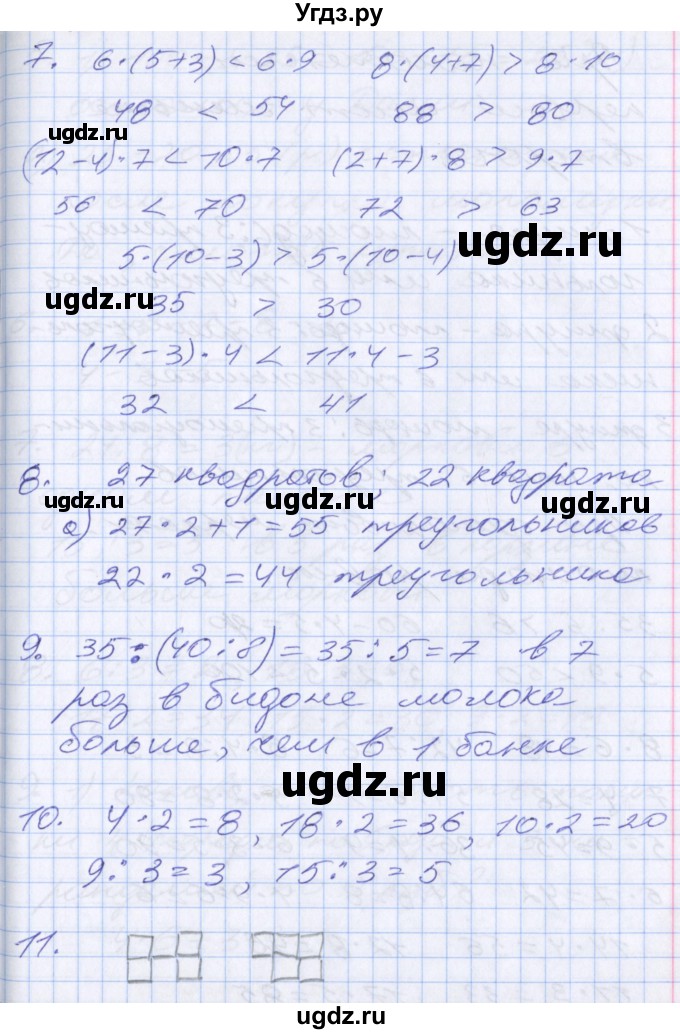 Угдз.ру
7. 6·(5+3) < 6·9 8·(4+7) > 8·10
48 < 54 88 > 80
ugdz.ru
(12-4)·7 < 10·7 (2+7)·8 > 9·7
56 < 70 72 > 63
ugdz.ru
5·(10-3) > 5·(10-4)
ugdz.ru
35 > 30
(11-3)·4 < 11·4-3
32 < 41
ugdz.ru
8. 27 квадратов; 22 квадрата
ugdz.ru
а) 27·2+1=55 треугольников
22·2=44 треугольника
ugdz.ru
9. 35:(40:8)=35:5=7 в 7
раз в бидоне молока
больше, чем в 1 банке
ugdz.ru
10. 4·2=8, 18·2=36, 10·2=20
ugdz.ru
9:3=3, 15:3=5
11.
ugdz.ru
ugdz.ru